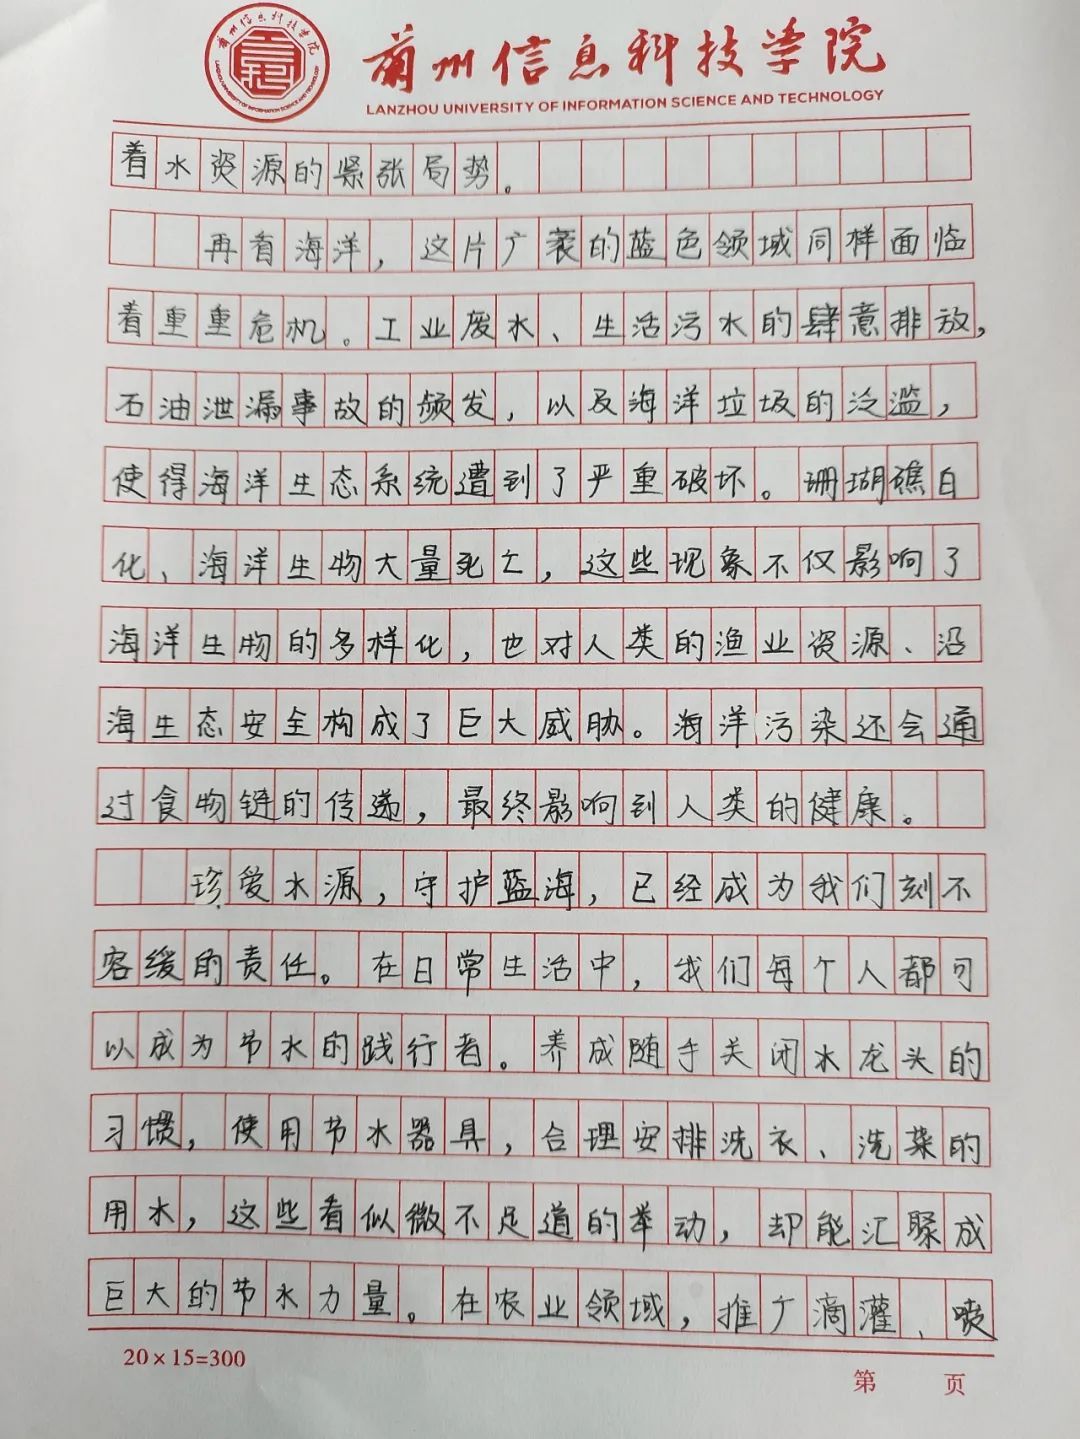 兰州信息科技学院
LANZHOU UNIVERSITY OF INFORMATION SCIENCE AND TECHNOLOGY
兰州信息科技学院
LANZHOU UNIVERSITY OF INFORMATION SCIENCE AND TECHNOLOGY
着水资源的紧张局势。
再看海洋，这片广袤的蓝色领域同样面临
着重重危机。工业废水、生活污水的肆意排放，
石油泄漏事故的频发，以及海洋垃圾的泛滥，
使得海洋生态系统遭到了严重破坏。珊瑚礁白
化、海洋生物大量死亡，这些现象不仅影响了
海洋生物的多样化，也对人类的渔业资源、沿
海生态安全构成了巨大威胁。海洋污染还会通
过食物链的传递，最终影响到人类的健康。
珍爱水源，守护蓝海，已经成为我们刻不
容缓的责任。在日常生活中，我们每个人都可
以成为节水的践行者。养成随手关闭水龙头的
习惯，使用节水器具，合理安排洗衣、洗菜的
用水，这些看似微不足道的举动，却能汇聚成
巨大的节水力量。在农业领域，推广滴灌、喷
20×15=300
第 页